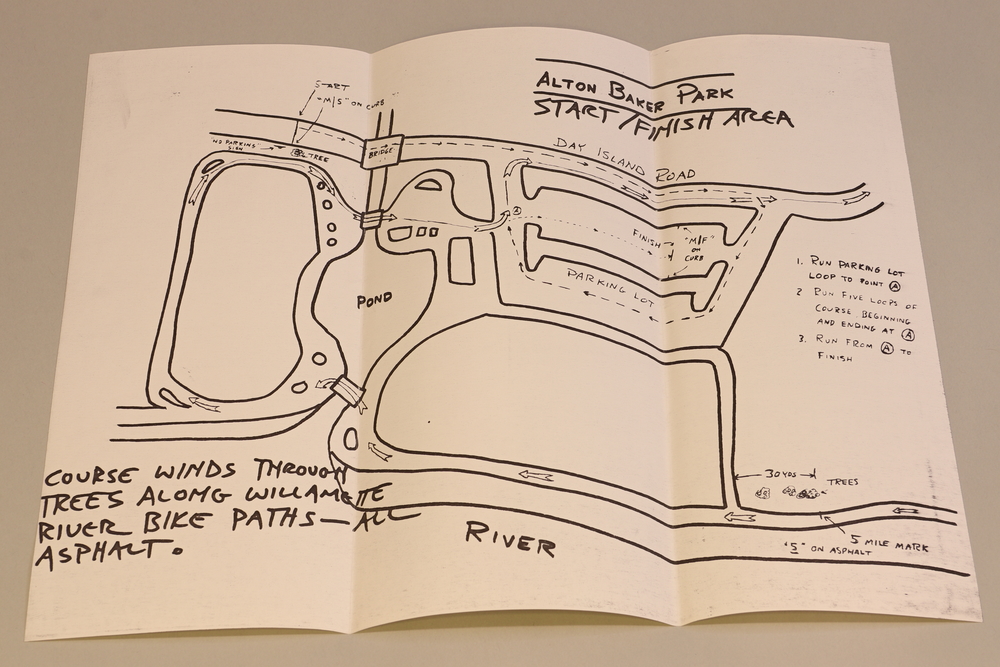 ALTON BAKER PARK
START/FINISH AREA
START
"M/S" ON CURB
NO PARKING
SIGN
TREE
BRIDGE
DAY ISLAND ROAD
A
FINISH
"M/F"
ON
CURB
PARKING LOT
POND
1. RUN PARKING LOT
LOOP TO POINT A
2 RUN FIVE LOOPS OF
COURSE BEGINNING
AND ENDING AT A
3. RUN FROM A TO
FINISH
COURSE WINDS THROUGH
TREES ALONG WILLAMETTE
RIVER BIKE PATHS — ALL
ASPHALT.
RIVER
30 YDS
TREES
5 MILE MARK
"5" ON ASPHALT